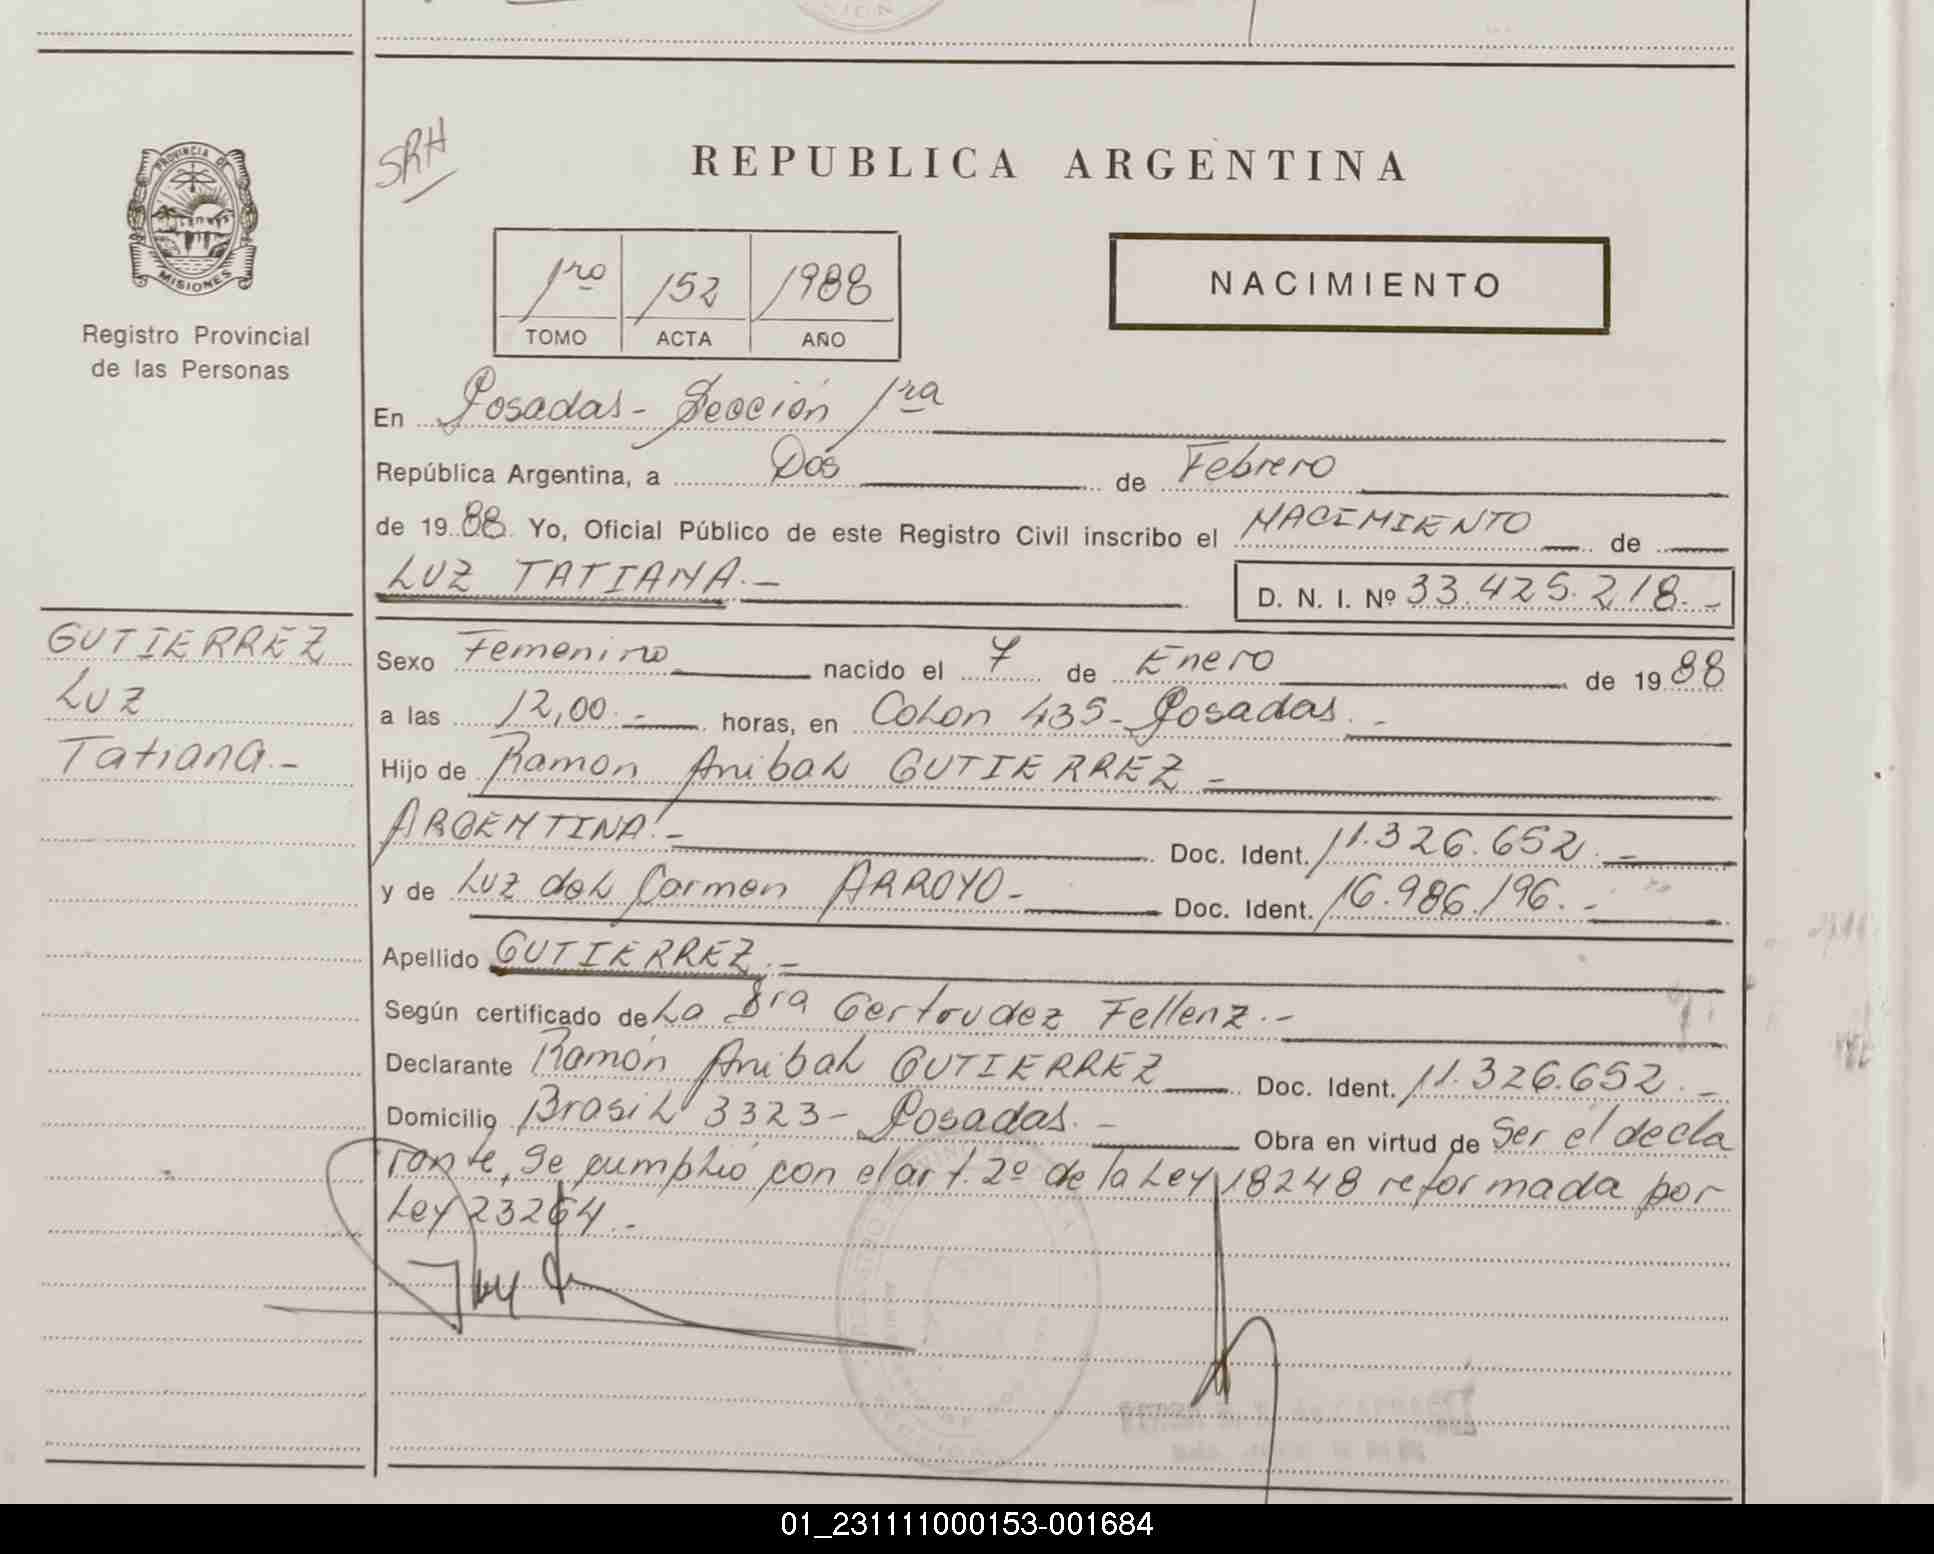 PROVINCIA DE
MISIONES
Registro Provincial
de las Personas
GUTIERREZ
Luz
Tatiana.-
SRH
REPUBLICA ARGENTINA
1ro 152 1988
TOMO ACTA AÑO
NACIMIENTO
En Posadas- Sección 1ra
República Argentina, a Dos de Febrero
de 1988 Yo, Oficial Público de este Registro Civil inscribo el NACIMIENTO de
LUZ TATIANA.- D. N. I. Nº 33.425.218.-
Sexo Femenino nacido el 7 de Enero de 1988
a las 12,00.- horas, en Colon 435- Posadas.-
Hijo de Ramon Anibal GUTIERREZ-
ARGENTINA.- Doc. Ident. 11.326.652.-
y de Luz del Carmen ARROYO- Doc. Ident. 16.986.196.-
Apellido GUTIERREZ.-
Según certificado de La Dra Gertrudez Fellenz.-
Declarante Ramón Anibal GUTIERREZ Doc. Ident. 11.326.652.-
Domicilio Brasil 3323- Posadas.- Obra en virtud de Ser el decla
rante, Se cumplió con el art. 2º de la Ley 18248 reformada por
Ley 23264.-
01_231111000153-001684